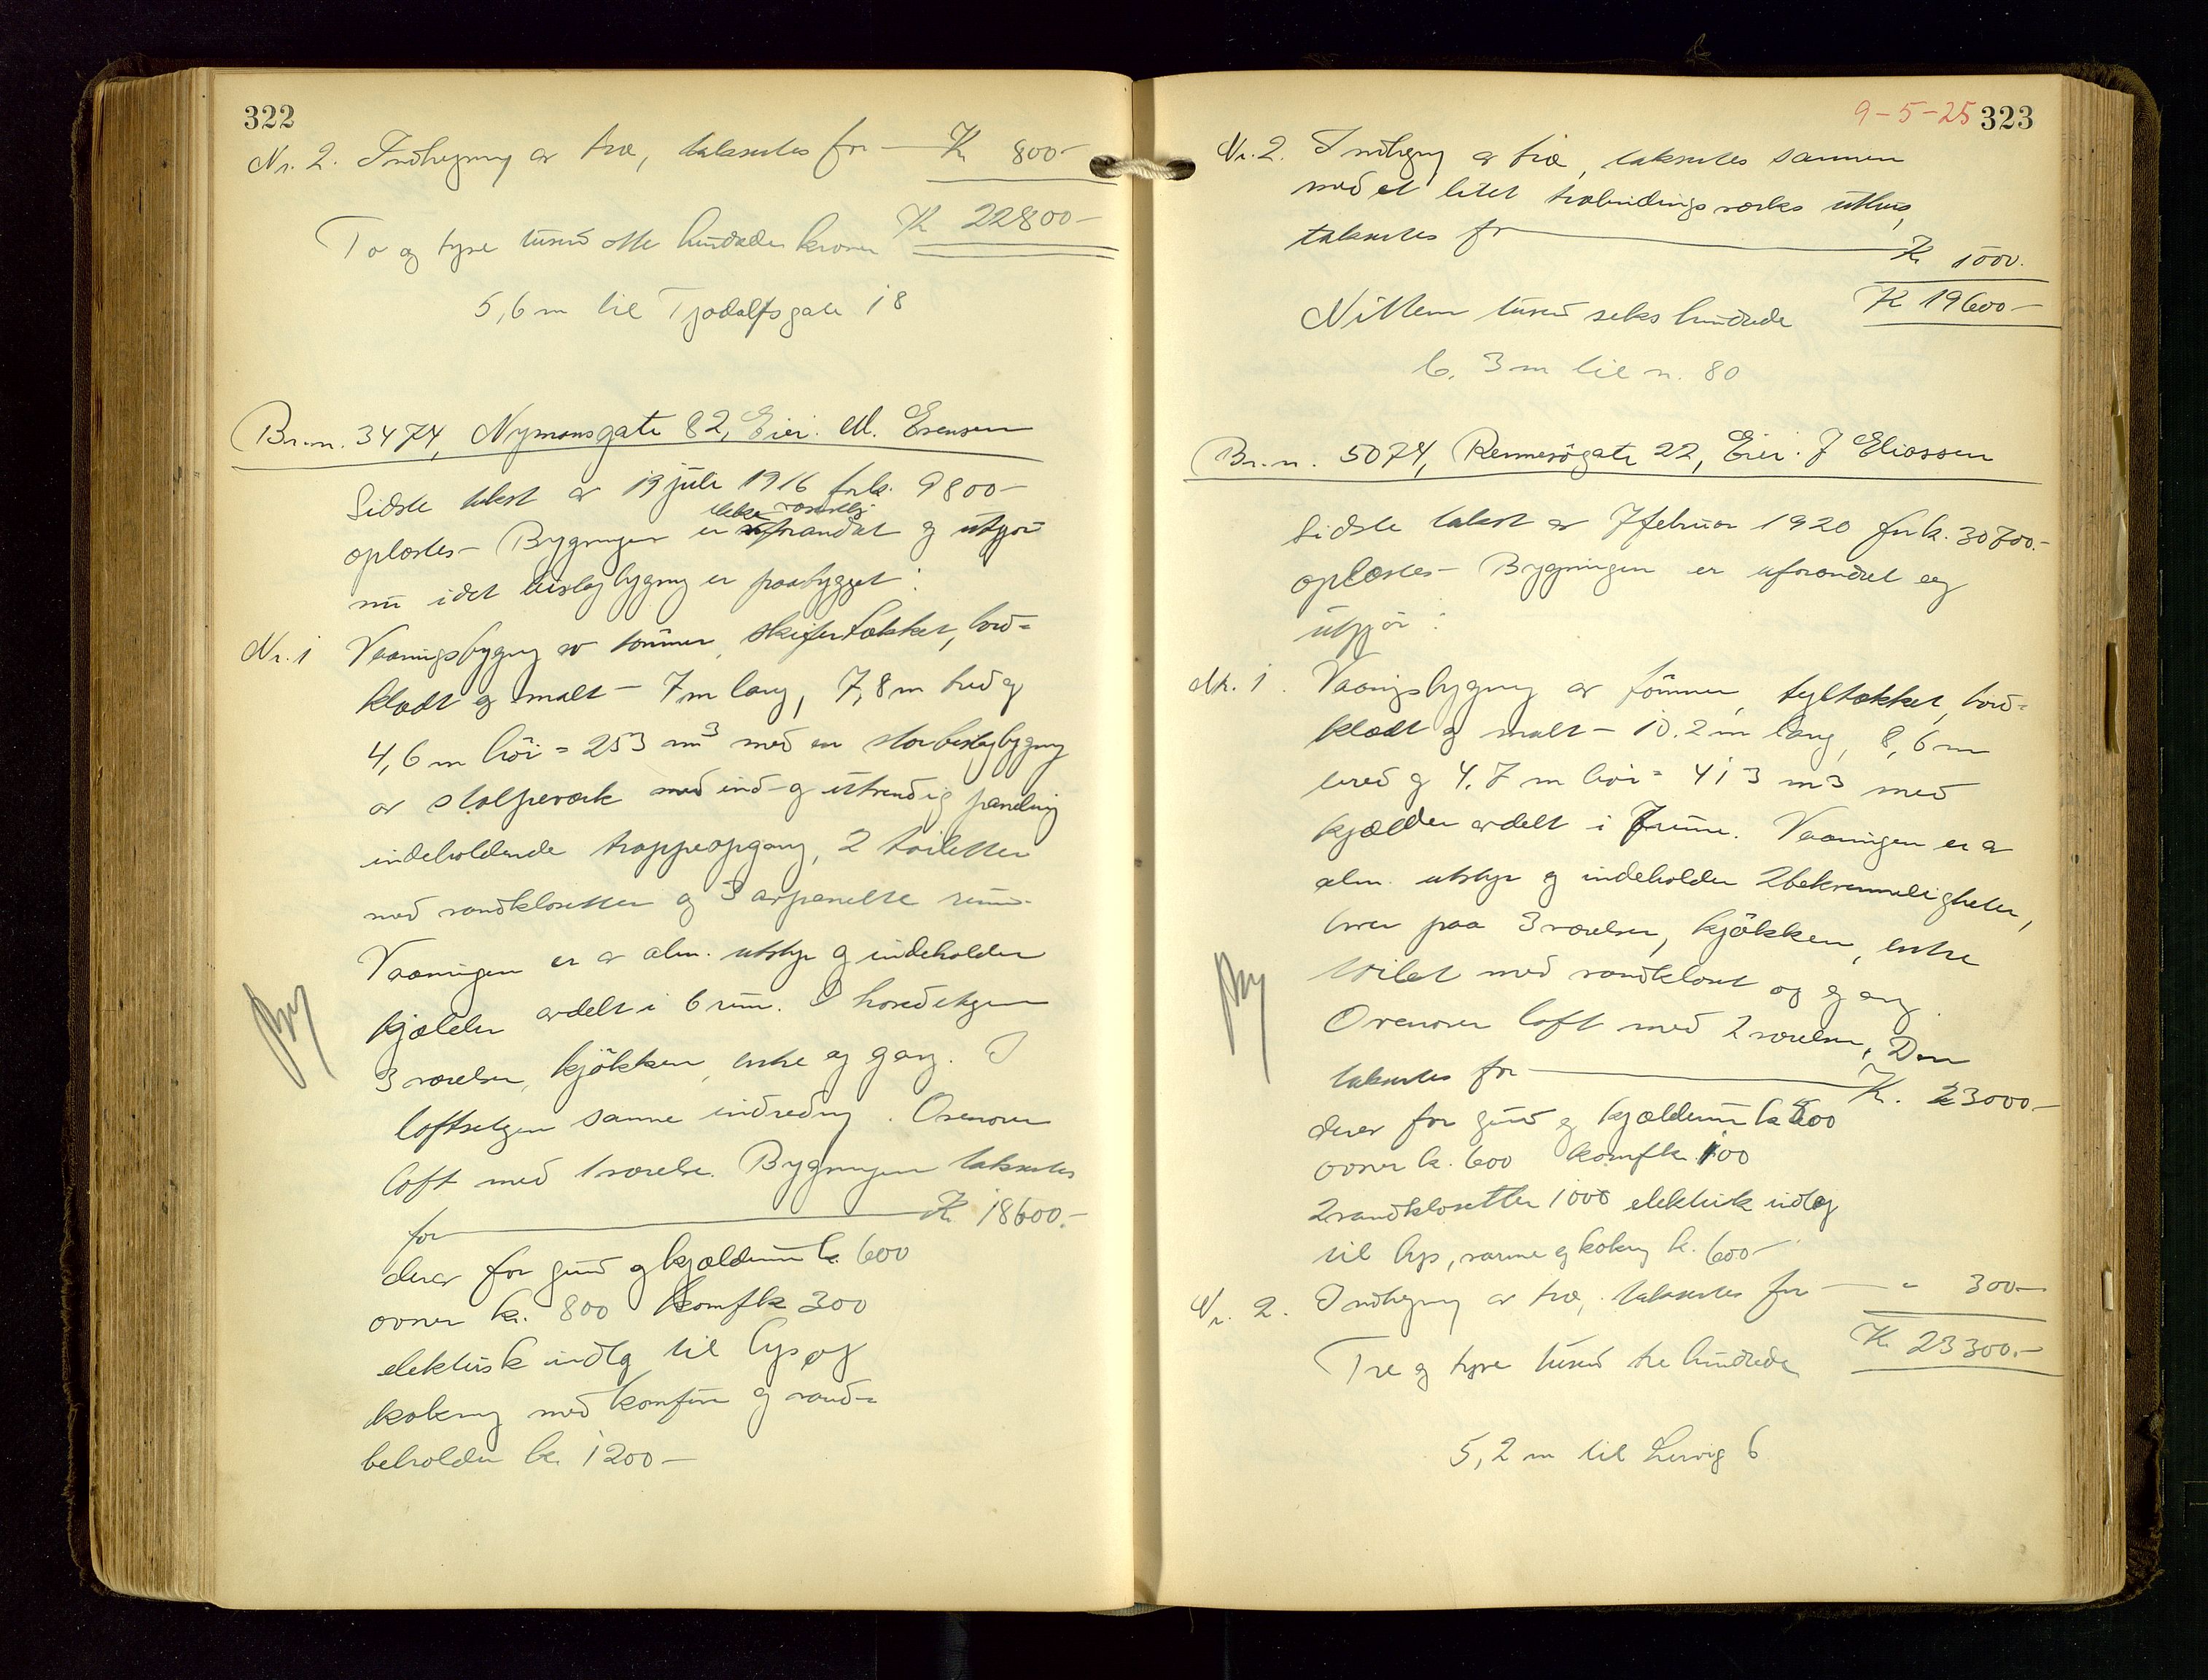 322
Nr. 2. Indhegning av træ, takseres for — Kr 800-
Kr 22800-
To og tyve tusind otte hundrede kroner
5,6 m til Tjodolfsgate 18
Br.n. 3474, Nymansgate 82, Eier: M. Evensen
Sidste takst av 19 juli 1916 for k. 9800-
ikke væsentlig
oplæstes - Bygningen er forandret og utgjør
nu idet bislagbygning er paabygget:
Nr. 1 Vaaningsbygning av tømmer, skifertækket, bord-
klædt og malt - 7 m lang, 7,8 m bred og
4,6 m høi = 253 m3 med en stor bislagbygning
av stolpeverk med ind- og utvendig paneling
indeholdende trappeopgang, 2 toiletter
med vandklosetter og 3 avpanelte rum.
Vaaningen er av alm. utstyr og indeholder
kjælder avdelt i 6 rum. I hovedetagen
3 værelser, kjøkken, entre og gang. I
loftsetagen samme indredning. Ovenover
loft med 1 værelse. Bygningen takseres
for — Kr 18600.-
derav for grund og kjældermur k. 600
ovner k. 800 komf k 300
elektrisk indlæg til lys og
kokning med komfur og vand-
beholder k. 1200-
9-5-25 323
Nr. 2. Indhegning av træ, takseres sammen
med et litet træbindingsverks uthus,
takseres for — Kr 1000.
Kr 19600-
Nitten tusind seks hundrede
6. 3 m til n. 80
Br.n. 5074, Rennesøgate 22, Eier: J Eliassen
Sidste takst av 7 februar 1920 for k. 30700.-
oplæstes - Bygningen er uforandret og
utgjør:
Nr. 1. Vaaningsbygning av tømmer, tegltækket, bord-
klædt og malt - 10.2 m lang, 8,6 m
bred og 4.7 m høi = 413 m3 med
kjælder avdelt i 7 rum. Vaaningen er av
alm. utstyr og indeholder 2 bekvemmeligheter,
hver paa 3 værelser, kjøkken, entre
toilet med vandkloset og gang.
Ovenover loft med 2 værelser. Den
takseres for — Kr. 23000-
derav for grund og kjældermur k 800
ovner k. 600 komf k. 100
2 vandklosetter 1000 elektrisk indlæg
til lys, varme og kokning k. 600-
Nr. 2. Indhegning av træ, takseres for — " 300-
Kr. 23300.-
Tre og tyve tusind tre hundrede
5,2 m til Lervig 6